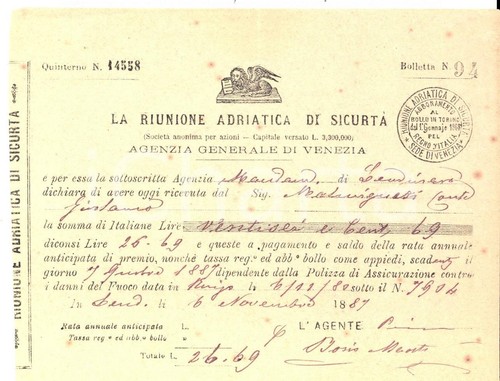 RIUNIONE ADRIATICA DI SICURTÀ
Quinterno N. 14558
Bolletta N. 94
RIUNIONE ADRIATICA DI SICURTÀ
ABBONAMENTO AL BOLLO IN TORINO
dal 1° Gennajo
PEL REGNO D'ITALIA
SEDE DI VENEZIA
LA RIUNIONE ADRIATICA DI SICURTÀ
(Società anonima per azioni — Capitale versato L. 3,300,000;)
AGENZIA GENERALE DI VENEZIA
e per essa la sottoscritta Agenzia Mandam. di Lendinara
dichiara di avere oggi ricevuta dal Sig. Conte
la somma di Italiane Lire Ventisei e Cent. 69
diconsi Lire 26-69 e queste a pagamento e saldo della rata annuale
anticipata di premio, nonchè tassa reg.ª ed abb.º bollo come appiedi, scadente il
giorno 7 1887 dipendente dalla Polizza di Assicurazione contro
i danni del Fuoco data in 6/12/80 sotto il N. 7904
In Lend. li 6 Novembre 1887
Rata annuale anticipata L.
Tassa reg.ª ed abb.º bollo »
Totale L. 26.69
L'AGENTE